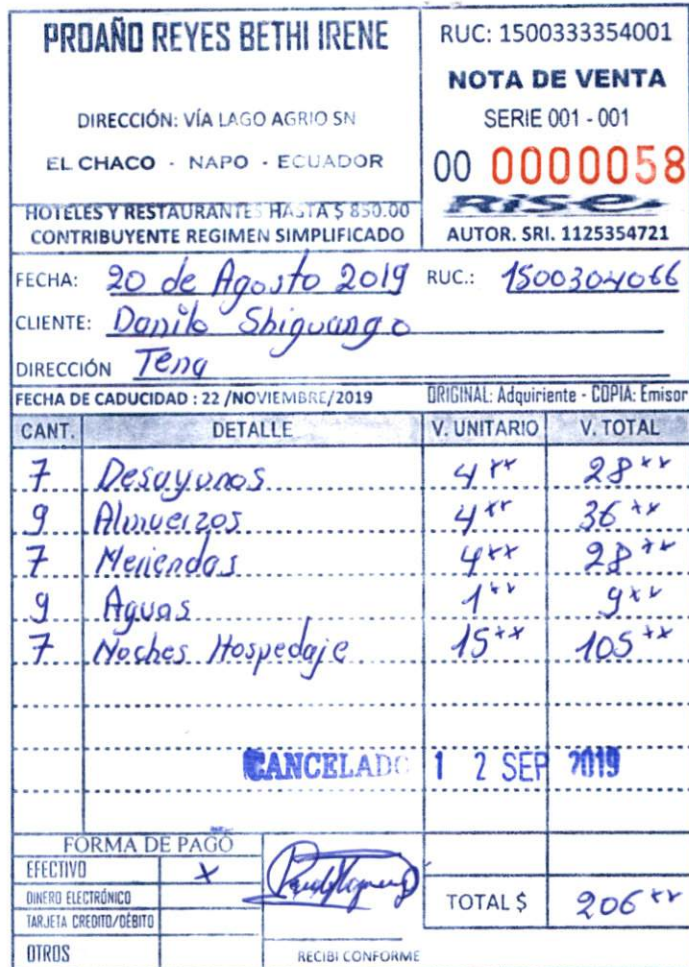 PROAÑO REYES BETHI IRENE
DIRECCIÓN: VÍA LAGO AGRIO SN
EL CHACO - NAPO - ECUADOR
HOTELES Y RESTAURANTES HASTA $ 850.00
CONTRIBUYENTE REGIMEN SIMPLIFICADO
RUC: 1500333354001
NOTA DE VENTA
SERIE 001 - 001
00 0000058
RISE
AUTOR. SRI. 1125354721
FECHA: 20 de Agosto 2019 RUC.: 1500304066
CLIENTE: Danilo Shiguango
DIRECCIÓN Tena
FECHA DE CADUCIDAD : 22 /NOVIEMBRE/2019 ORIGINAL: Adquiriente - COPIA: Emisor
CANT. DETALLE V. UNITARIO V. TOTAL
7 Desayunos 4 xx 28 xx
9 Almuerzos 4 xx 36 xx
7 Meriendas 4 xx 28 xx
9 Aguas 1 xx 9 xx
7 Noches Hospedaje 15 xx 105 xx
CANCELADO 1 2 SEP 2019
FORMA DE PAGO
EFECTIVO X
DINERO ELECTRÓNICO
TARJETA CREDITO/DÉBITO
OTROS
RECIBI CONFORME
TOTAL $ 206 xx